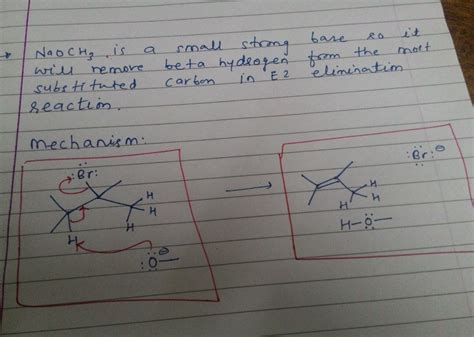 * NaOCH3 is a small strong base so it
will remove beta hydrogen from the most
substituted carbon in E2 elimination
reaction.
mechanism:
:Br:
H
H
H
H
:O: ⊖
:Br: ⊖
H
H
H
H-O-